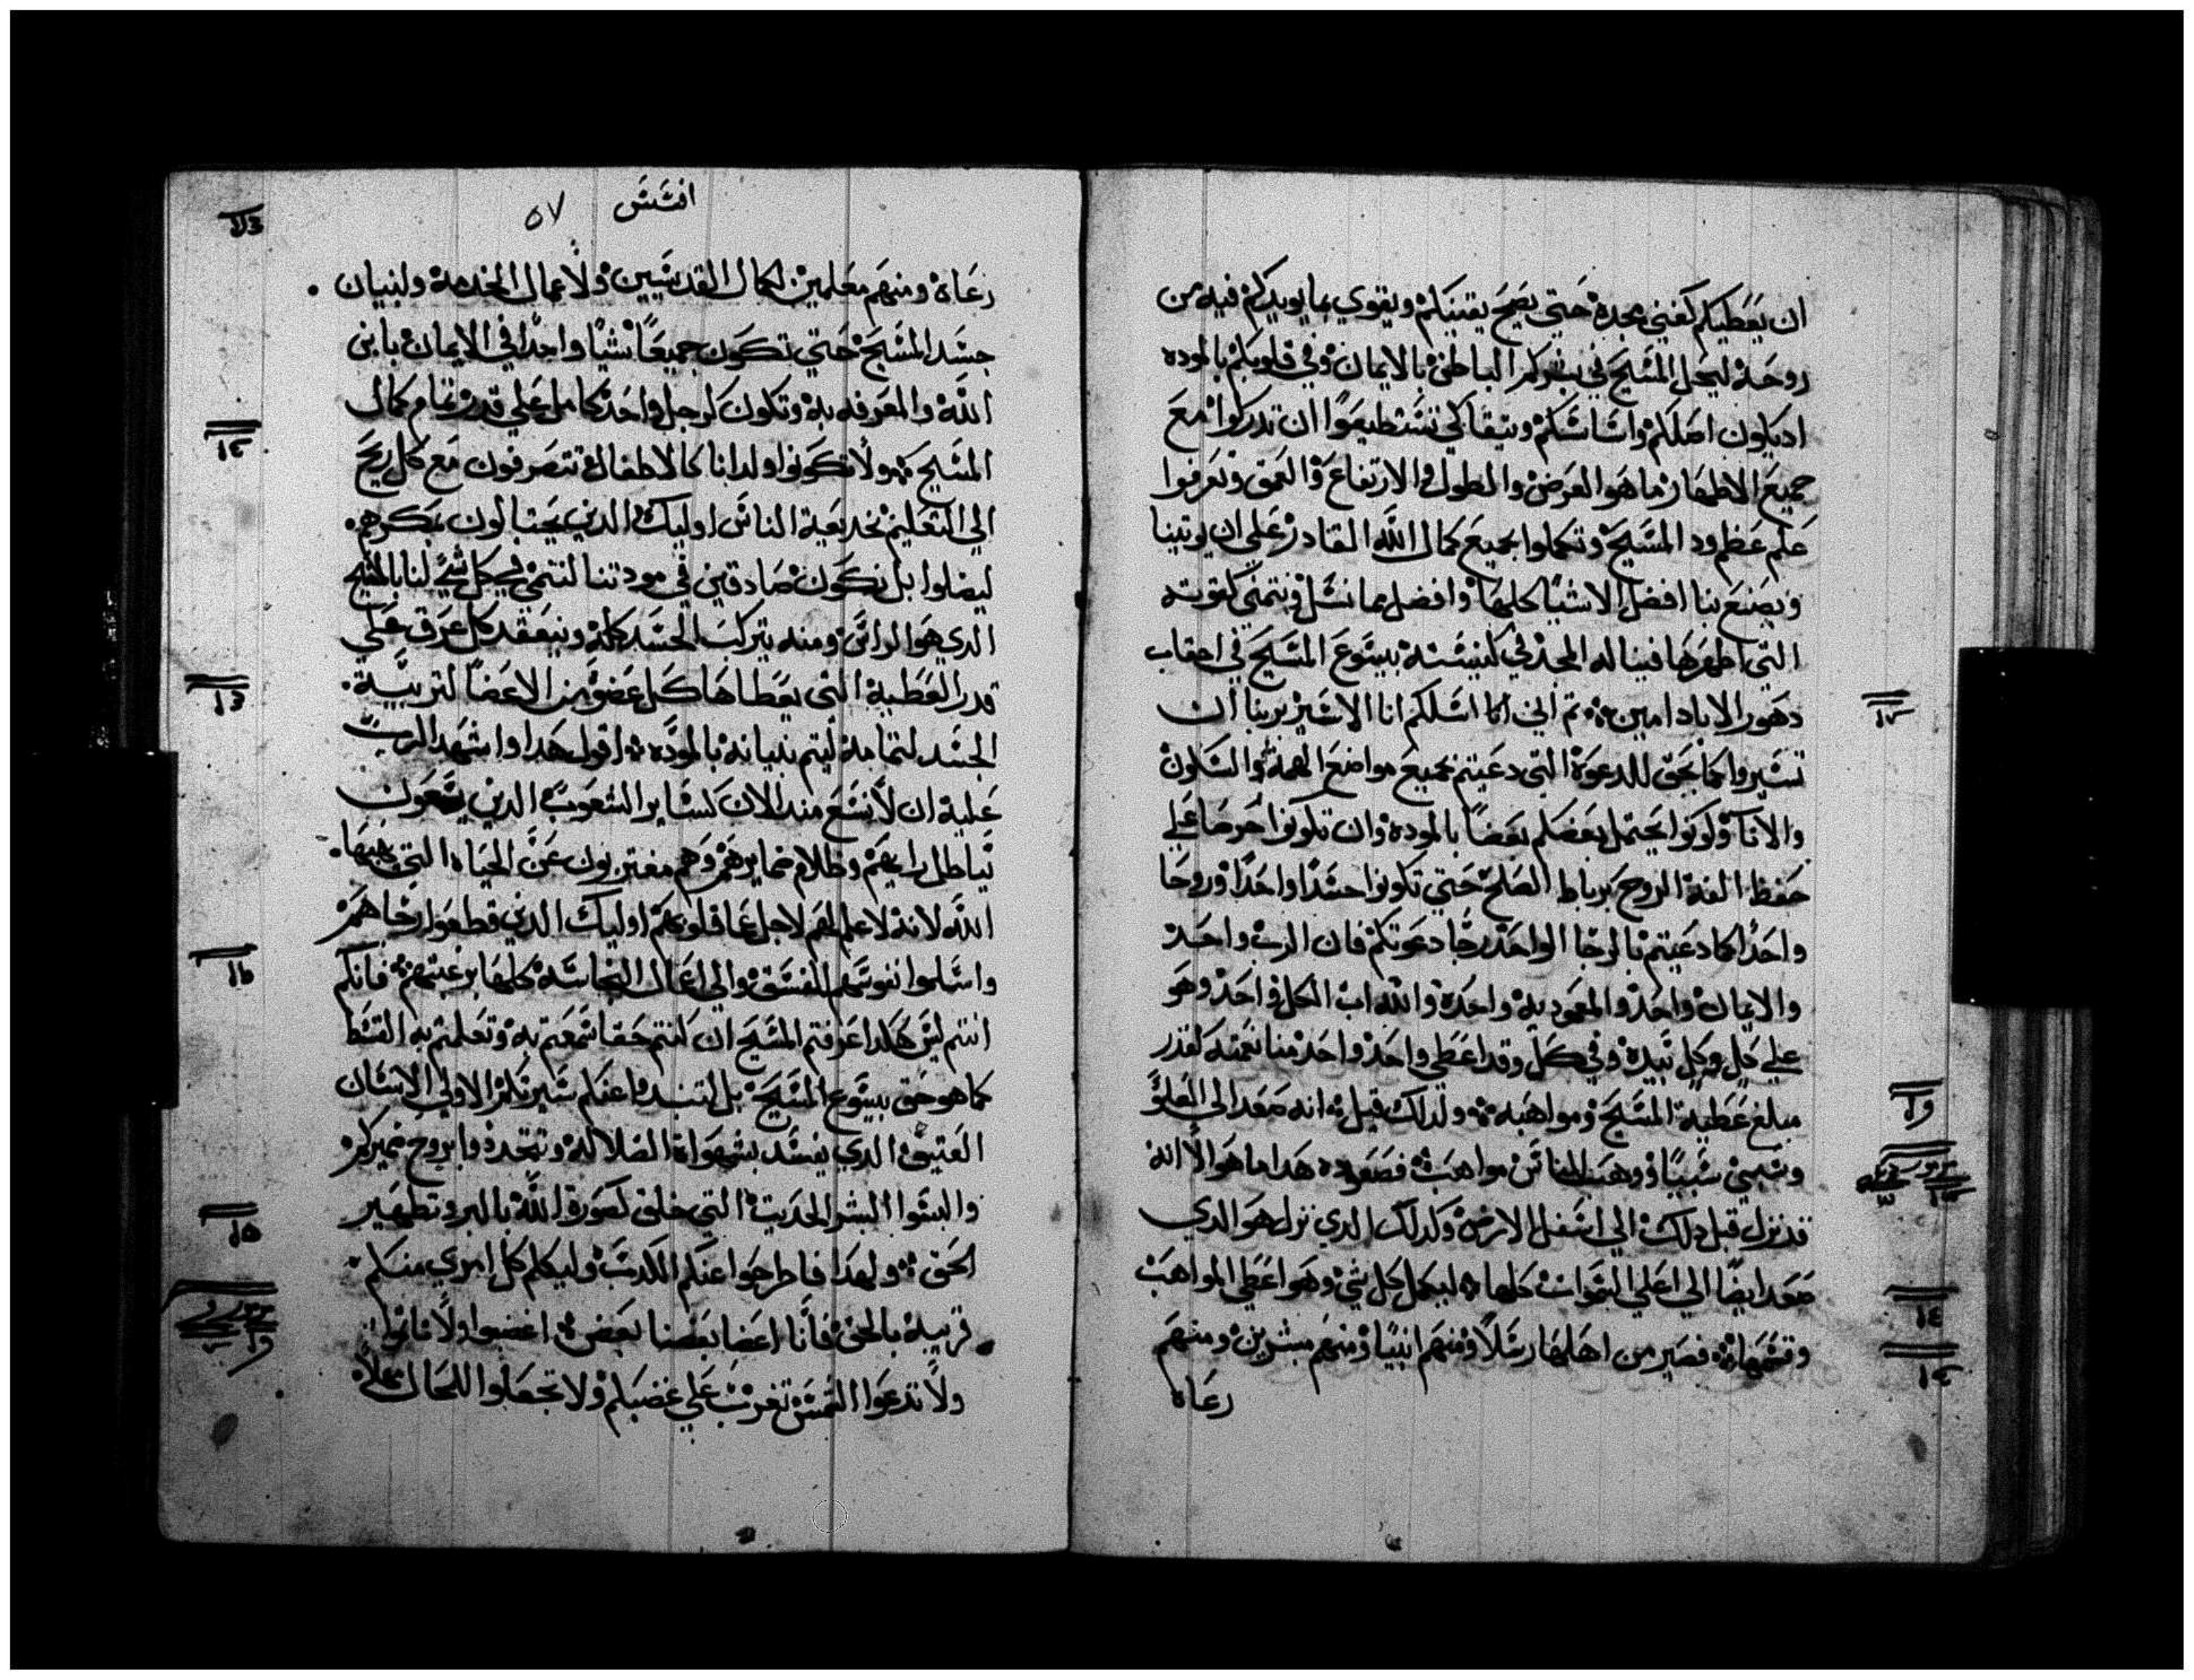 ان يعطيكم كغني مجده حتي يصح يقينكم ويقوي بما يويدكم فيه من
روحه ليحل المسيح في بشركم الباطن بالايمان وفي قلوبكم بالموده
اد يكون اصلكم واساسكم وتيقا كي تستطيعوا ان تدركوا مع
جميع الاطهار ما هو العرض والطول والارتفاع والعمق وتعرفوا
علم عظم ود المسيح وتكملوا بجميع كمال الله القادر علي ان يوتينا
ويصنع بنا افضل الاشيا كلها وافضل مما نسل ونتمني كقوته
التي اظهرها فينا له المجد في كنيسته بيسوع المسيح في احقاب
دهور الاباد امين تم اني انا اسلكم انا الاسير بربنا ان
تسيروا كما يحق للدعوة التي دعيتم بجميع مواضع الهمة والسكون
والاناة وكونوا يحتمل بعضكم بعضا بالموده وان تكونوا حرصا علي
حفظ الفة الروح برباط الصلح حتي تكونوا جسدا واحدا وروحا
واحدا كما دعيتم بالرجا الواحد رجا دعوتكم فان الرب واحد
والايمان واحد والمعموديه واحده والله اب الكل واحد وهو
علي كل وبكل تبيره وفي كل وقد اعطي واحد واحد منا نعمه كقدر
مبلغ عطية المسيح ومواهبه ولدلك قيل انه صعد الي العلو
وسبي سبيا ووهب للناس مواهب فصعوده هدا ما هو الا انه
قد نزل قبل دلك الي اسفل الارض وكدلك الدي نزل هو الدي
صعد ايضا الي اعلي السموات كلها ليكمل كل شي وهو اعطي المواهب
وقسمها فصير من اهلها رسلا ومنهم انبيا ومنهم مبشرين ومنهم
رعاه
افسس ٥٧
رعاه ومنهم معلمين لكمال القديسين ولاعمال الخدمة ولبنيان
جسد المسيح حتي نكون جميعا شيا واحدا في الايمان بابن
الله والمعرفه به ونكون كرجل واحد كامل علي قدر تمام كمال
المسيح ولا نكونوا ولدانا كالاطفال نتصرفون مع كل ريح
الي التعليم بخديعة الناس اوليك الدين يحتالون بمكرهم
ليضلوا بل نكون صادقين في مودتنا لننمي كل شي لنا بالمسيح
الدي هو الراس ومنه يتركب الجسد كله وينعقد كل عرق علي
قدر العطية التي يعطاها كل عضو من الاعضا لتربية
الجسد لتمامه ليتم بنيانه بالموده اقول هدا واشهد الرب
عليه ان لا نسع مند الان كساير الشعوب الدين يسعون
بباطل رايهم وظلام ضمايرهم وهم مغتربون عن الحياه التي يهبها
الله لانه لا علم لهم لاجل عما قلوبهم اوليك الدين قطعوا رجاهم
واسلموا نفوسهم للفسق والي اعمال النجاسة كلها برغبتهم فانكم
انتم ليس هكدا عرفتم المسيح ان كنتم حقا سمعتم به وتعلمتم به القسط
كما هو حق بيسوع المسيح بل لتنبدوا عنكم سيرتكم الاولي الانسان
العتيق الدي يفسد بشهواة الضلاله وتتجددوا بروح ضميركم
والبسوا البشر الحديت التي خلق لصورة الله بالبر وتطهير
الحق ولهدا فاطرحوا عنكم الكدب وليكلم كل امري منكم
قريبه بالحق فانا اعضا بعضنا بعض اغضبوا ولا تاتموا
ولا تدعوا الشمس تغرب علي غضبكم ولا تجعلوا للمحال محلا